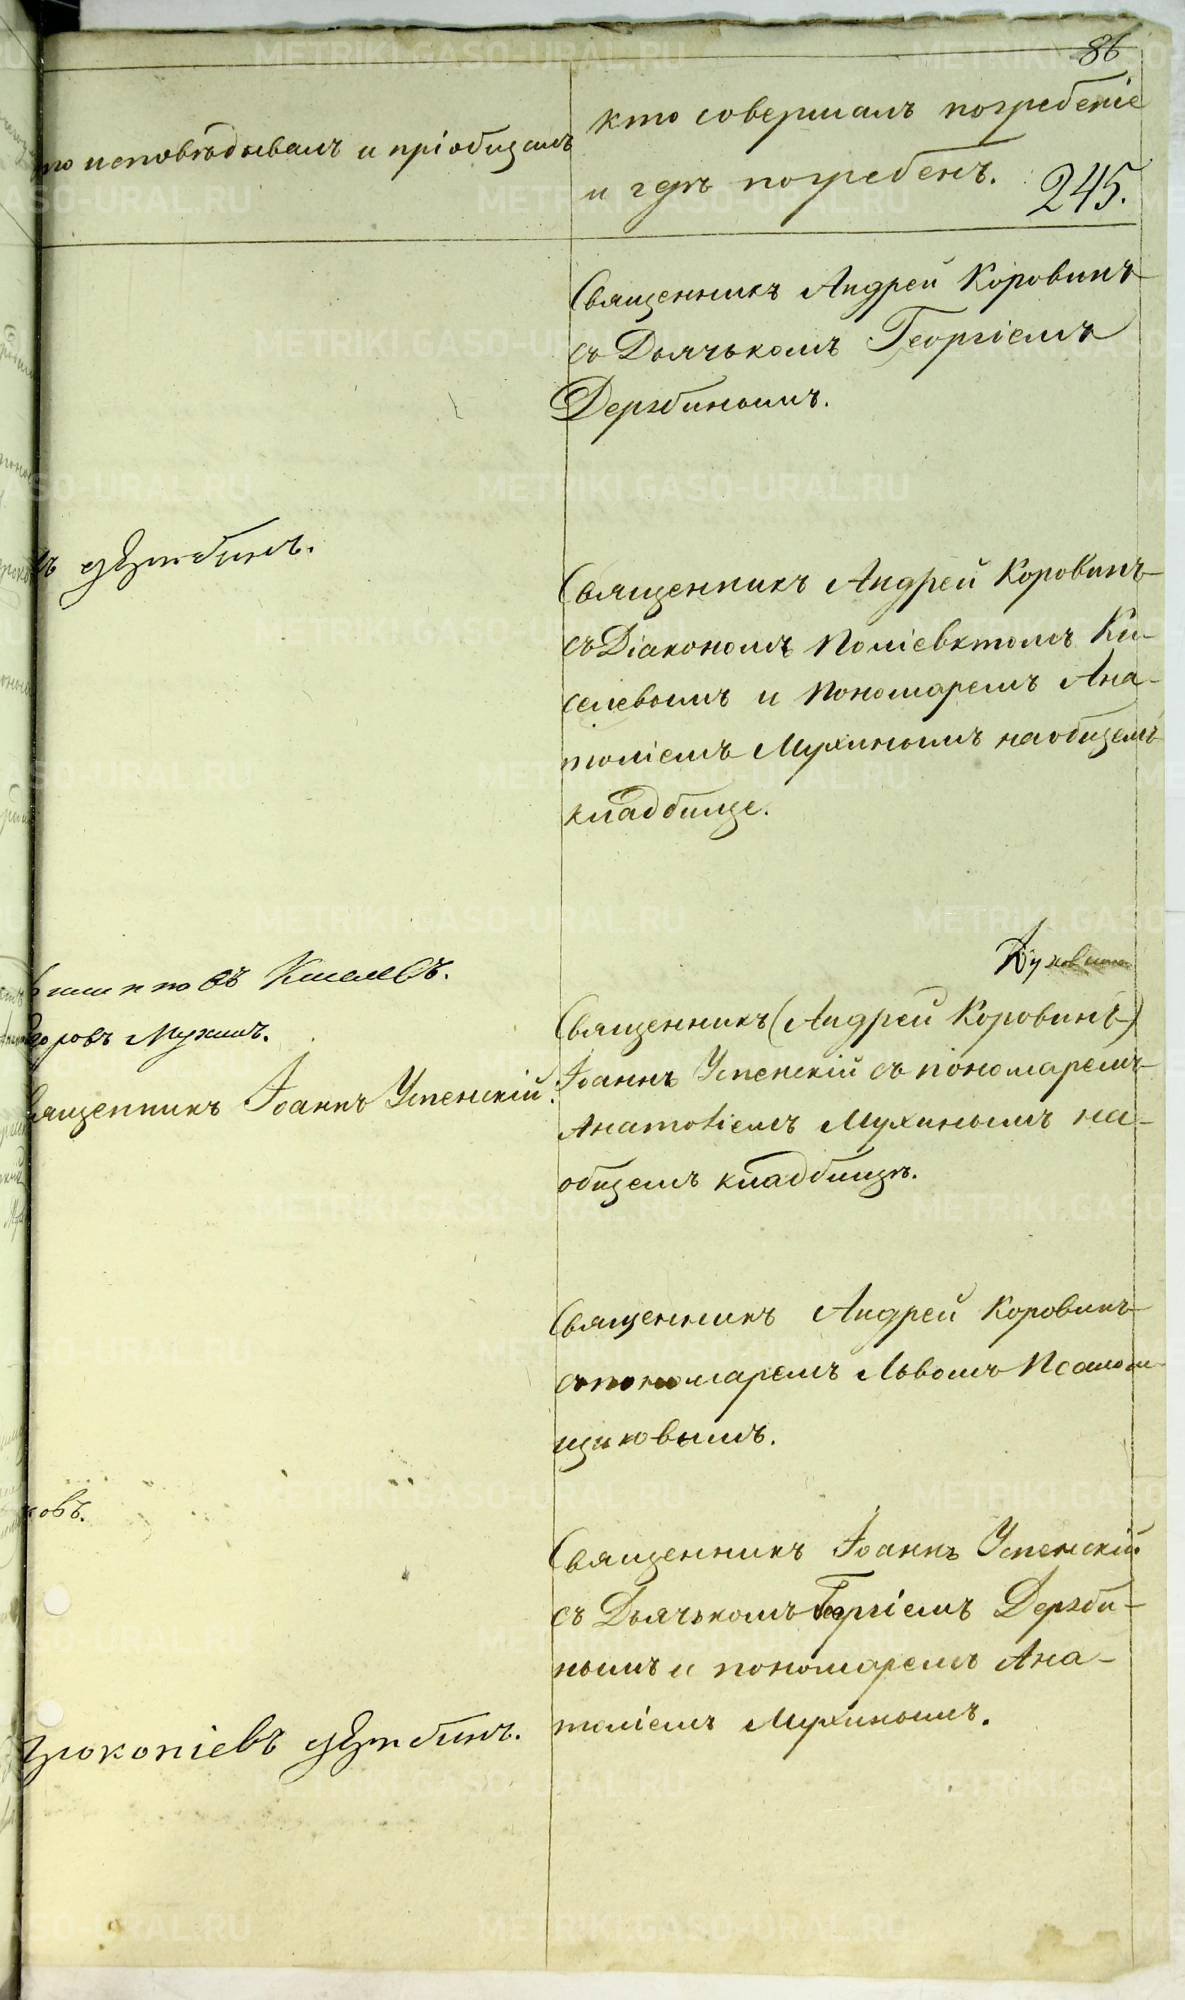 86
то исповѣдывалъ и пріобщалъ
кто совершалъ погребеніе
и гдѣ погребенъ.
245.
Священникъ Андрей Коровинъ
съ Дьячькомъ Георгіемъ
Дерябинымъ.
Священникъ Андрей Коровинъ
съ Діакономъ Поліевктомъ Ки-
селевымъ и Пономаремъ Ана-
толіемъ Мухинымъ на общемъ
кладбище.
Киселевъ.
Мухинъ.
вященникъ Іоаннъ Успенскій.
Священникъ (Андрей Коровинъ)
Іоаннъ Успенскій съ пономаремъ
Анатоліемъ Мухинымъ на-
общемъ кладбищѣ.
Священникъ Андрей Коровинъ
съ пономаремъ Львомъ Псалом-
щиковымъ.
ковъ.
Священникъ Іоаннъ Успенскій
съ Дьячькомъ Георгіемъ Деряби-
нымъ и пономаремъ Ана-
толіемъ Мухинымъ.
рокопіевъ
METRIKI.GASO-URAL.RU